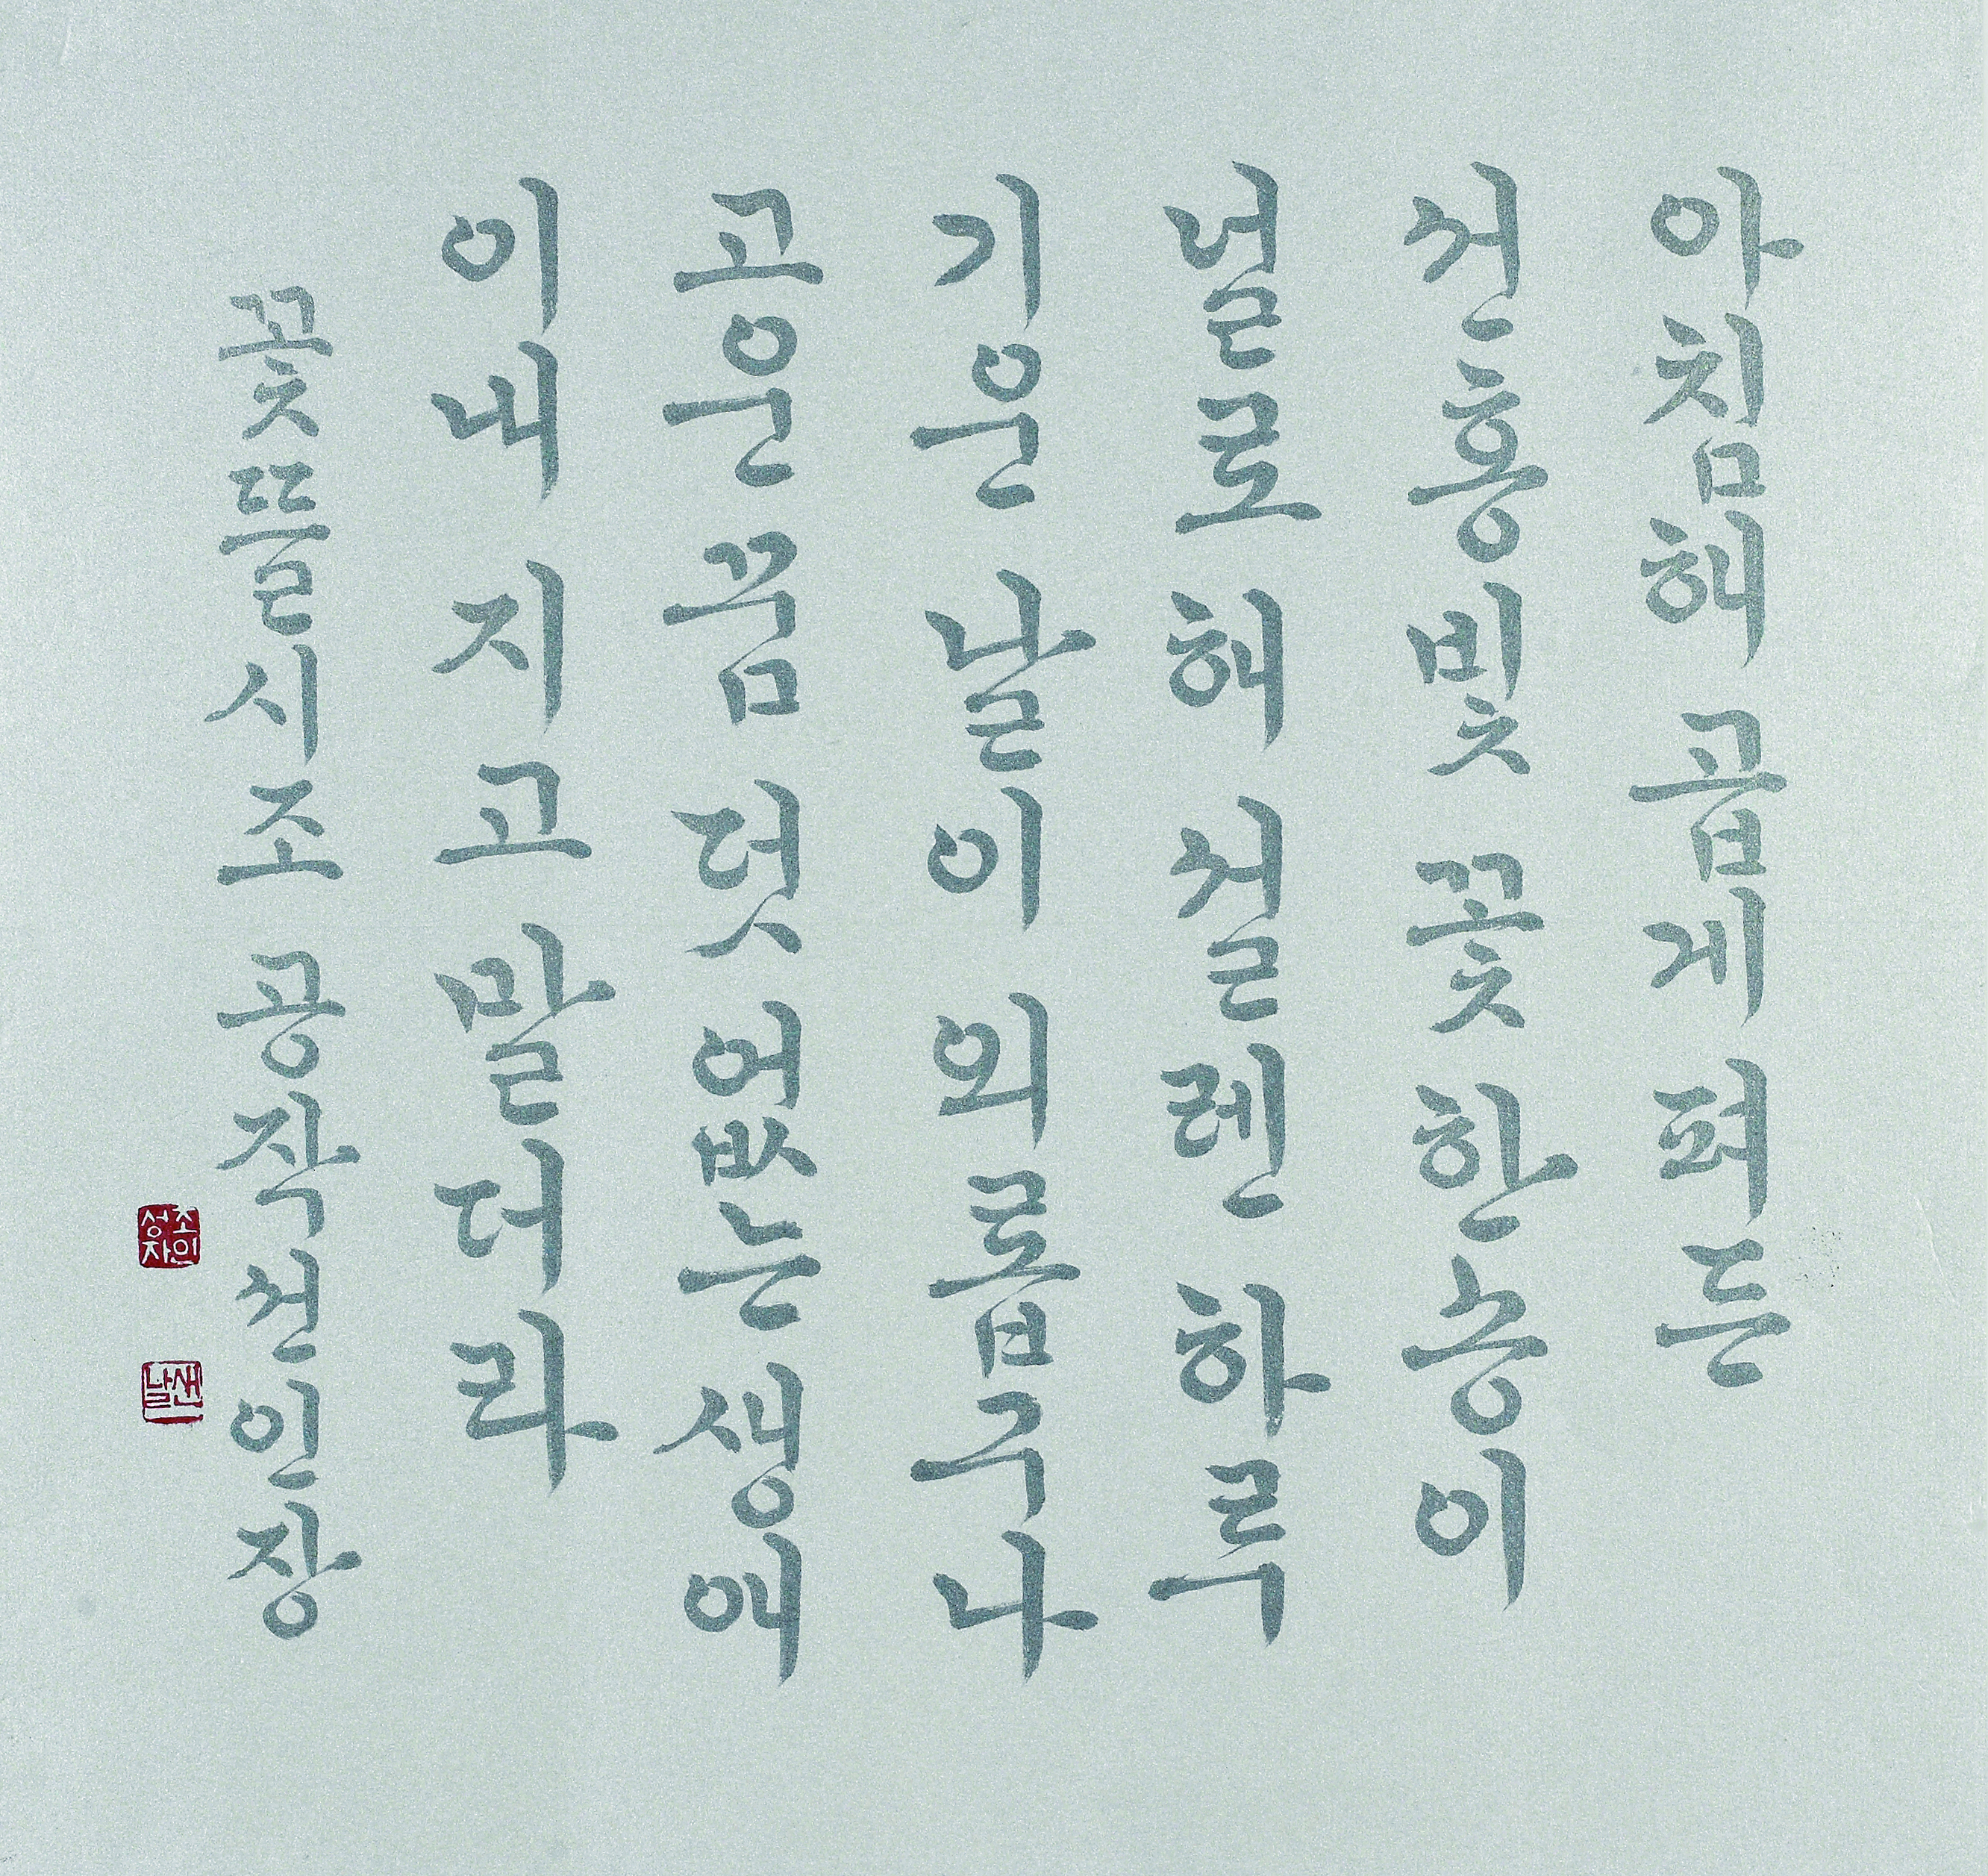 아침해 곱게 펴든
선홍빛 꽃 한송이
널로 해 설렌 하루
기운 날이 외롭구나
고운 꿈 덧없는 생애
이내 지고 말더라
꽃뜰 시조 공작선인장
조인성자
샌날